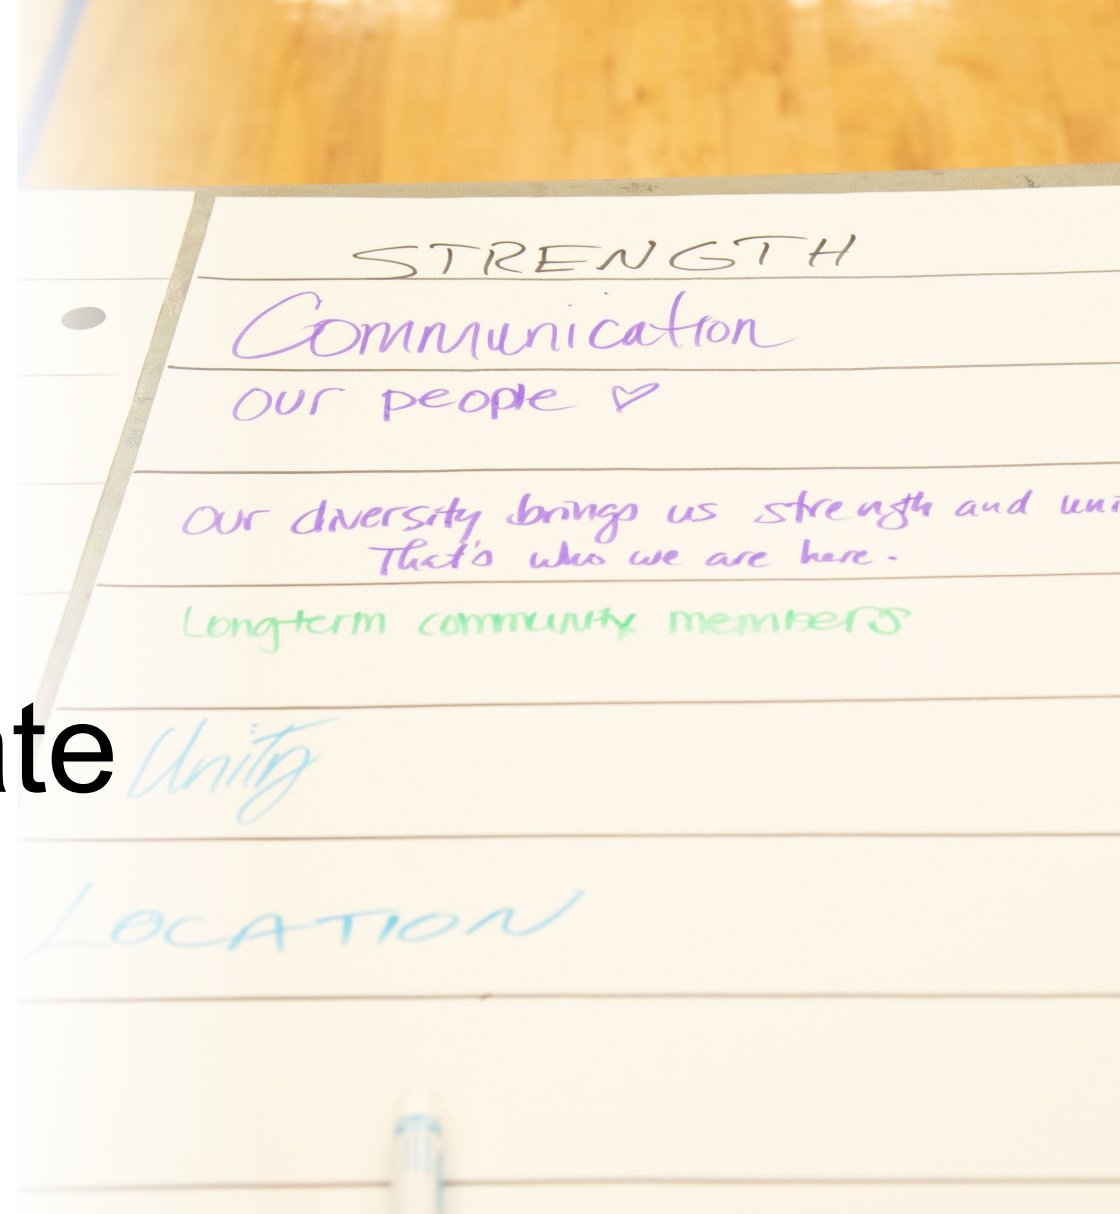 STRENGTH
Communication
our people ♡
Our diversity brings us strength and uni
That's who we are here.
Longterm community members
ate
Unity
LOCATION